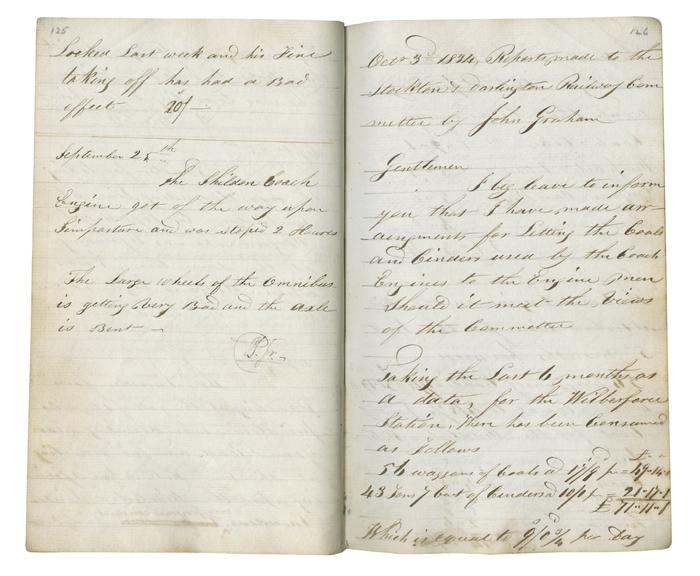 125
Locked Last week and his Fine
taking off has had a Bad
effect 20/-
September 25th
The Shildon Coach
Engine got of the way upon
Simpasture and was stoped 2 Hours
The Large wheels of the Omnibus
is getting Very Bad and the axle
is Bent -
126
Octr 3rd 1834, Reports made to the
Stockton & Darlington Railway Com
mittee by John Graham
Gentlemen
I beg leave to inform
you that I have made arr
angments for Letting the Coals
and Cinders used by the Coach
Engines to the Engine men
Should it meet the Views
of the Committee
Taking the Last 6 months as
a data, for the Wilberforce
Station, There has been Consumed
as follows
56 waggons of Coals a 17/8 pr = 49-14-
43 Tons 7 Cwt of Cinders a 10/1 pr 21-17-1
£ 71-11-1
Which is equal to 9/0 3/4 per Day